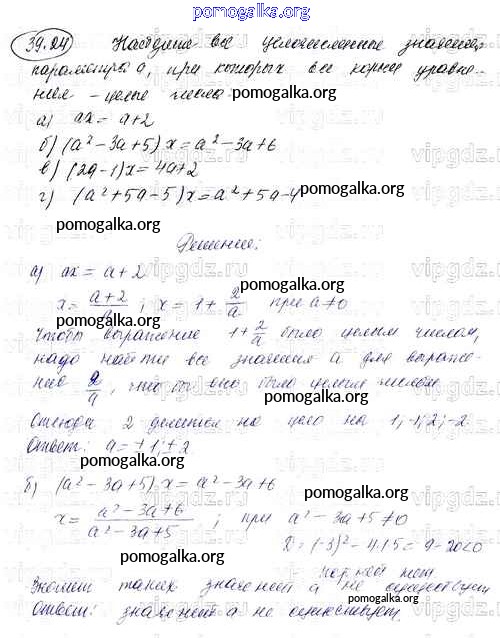 pomogalka.org
39.24 Найдите все целочисленные значения
параметра a, при которых все корни уравне-
ния - целые числа:
а) ax = a+2
pomogalka.org
б) (a² - 3a + 5) x = a² - 3a + 6
в) (2a - 1) x = 4a + 2
pomogalka.org
г) (a² + 5a - 5) x = a² + 5a - 4
pomogalka.org
Решение:
а) ax = a + 2
pomogalka.org
x = a+2 ; x = 1 + 2/a при a ≠ 0
pomogalka.org
Чтобы выражение 1 + 2/a было целым числом,
надо найти все значения a для выраже-
ния 2/a, чтобы оно было целым числом
Отсюда 2 делится на цело на 1, -1, 2, -2
Ответ: a = ±1; ±2
pomogalka.org
б) (a² - 3a + 5) x = a² - 3a + 6
pomogalka.org
x = a² - 3a + 6 / a² - 3a + 5 ; при a² - 3a + 5 ≠ 0
D = (-3)² - 4·1·5 = 9 - 20 < 0
pomogalka.org
корней нет
Значит таких значений a не существует
pomogalka.org
Ответ: значений a не существует.
pomogalka.org
vipgdz.ru